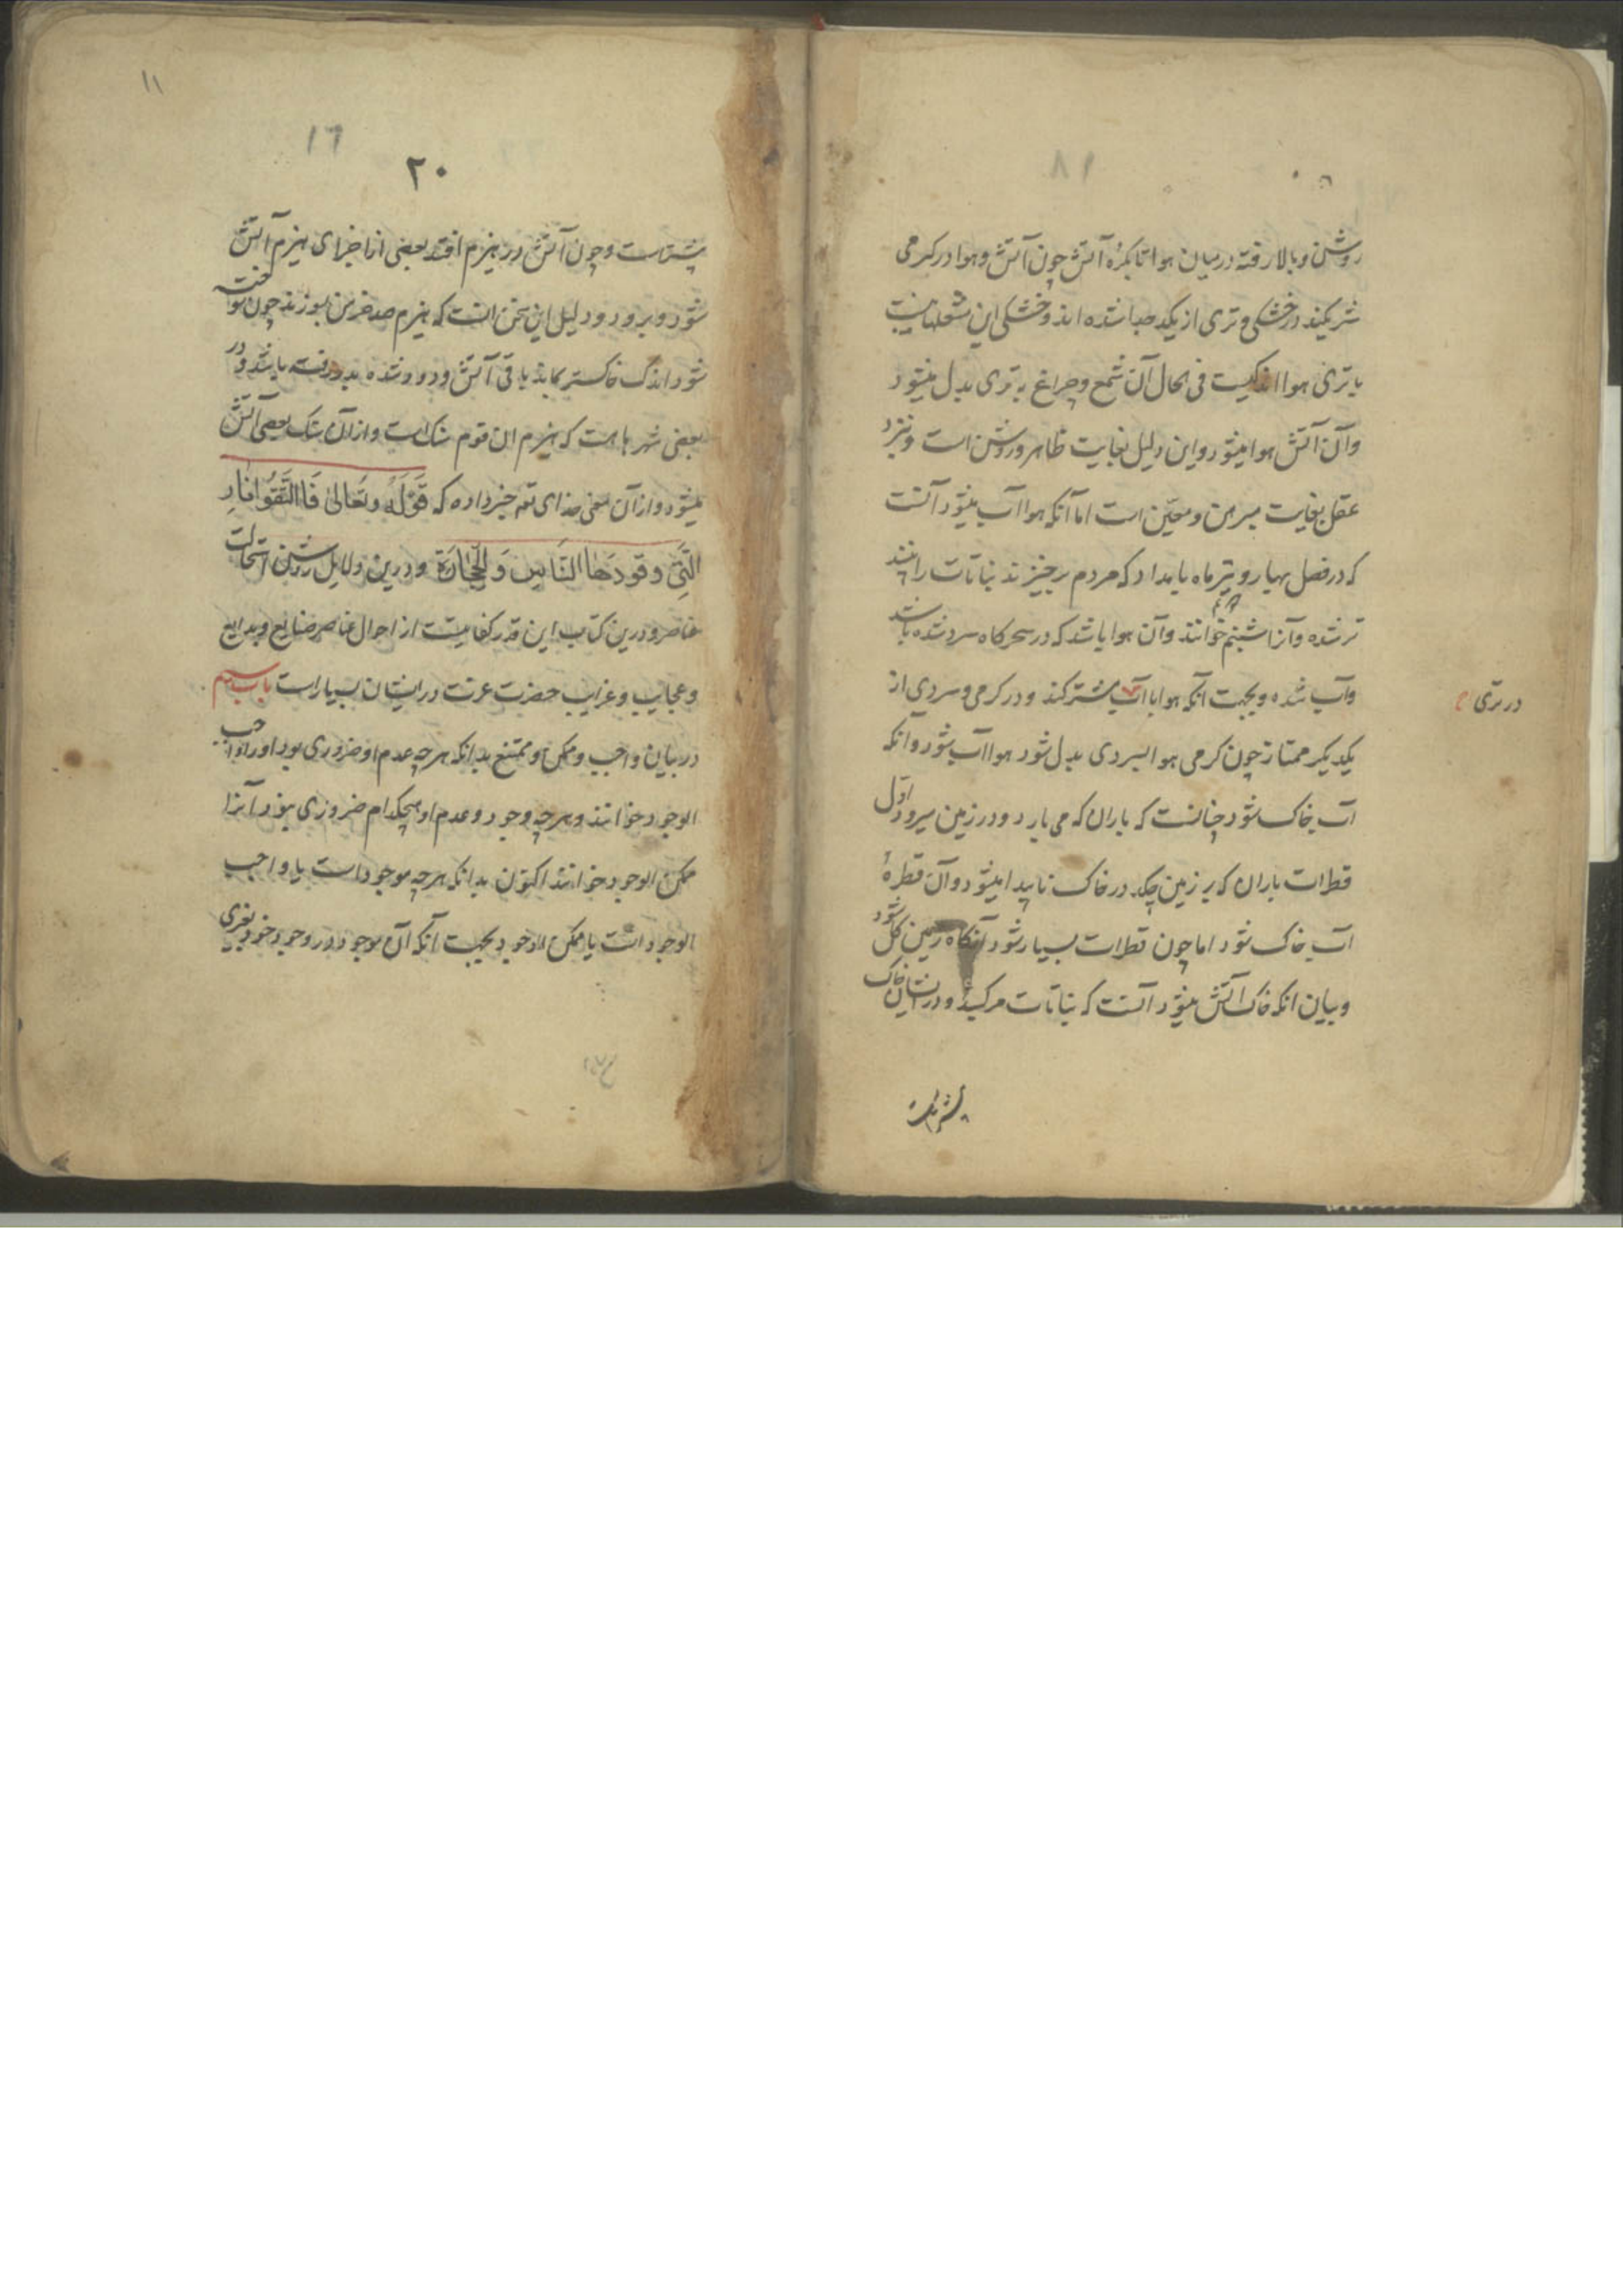 روشن و بالا رفته در میان هوا تا بکرهٔ آتش چون آتش و هوا در گرمی
شریکند در خشکی و تری از یکد جدا شده اند و خشکی این شعلها نسبت
با تری هوا اندکیست فی الحال آن شمع و چراغ به تری بدل میشود
و آن آتش هوا میشود و این دلیل بغایت ظاهر و روشن است و نزد
عقل بغایت مبرهن و معین است اما آنکه هوا آب میشود آنست
که در فصل بهار و تیر ماه بامداد که مردم برخیزند نباتات را بینند
تر شده و آنرا شبنم خوانند و آن هوا باشد که در سحرکاه سرد شده باشد
و آب شده و بجهت آنکه هوا با آب مشترکند و در گرمی و سردی از
در تری
یکدیگر ممتاز چون گرمی هوا بسردی بدل شود هوا آب شود و آنکه
آب خاک شود چنانست که باران که می بارد و در زمین میرود اول
قطرات باران که بر زمین چکد در خاک ناپیدا میشود و آن قطرهٔ
آب خاک شود اما چون قطرات بسیار شود آنکاه زمین گل شود
و بیان آنکه خاک آتش میشود آنست که نباتات مرکبند و در ایشان خاک
بیشتر است
۱۱
۱٦
۲۰
بیشتر است و چون آتش در هیزم افتد بعضی از اجزای هیزم آتش
شود و برود و دلیل این سخن آنست که هیزم صد خرمن بسوزند چون سوخته
شود اندک خاکستر بماند باقی آتش و دود شده بدر رفته باشد و در
بعضی شهرها هست که هیزم آن قوم سنک است و از آن سنک بعضی آتش
میشود و از آن معنی خدای تعم خبر داده که قَوْلُهُ وتَعالی فَاالتَّقُوا نارِ
الَّتی وقودَهَا النَّاسِ وَالحِجٰارَة و درین دلایل روشن استحالت
عناصر و درین کتاب این قدر کفایتست از احوال عناصر صنایع و بدایع
و عجایب و غرایب حضرت عزت در ایشان بسیار است باب سیم
در بیان واجب و ممکن و ممتنع بدانکه هرچه عدم او ضروری بود اورا واجب
الوجود خوانند و هرچه وجود و عدم او هیچکدام ضروری نبود آنرا
ممکن الوجود خوانند اکنون بدانکه هرچه موجود است یا واجب
الوجود است یا ممکن الوجود بجهت آنکه آن موجود در وجود خود بغیری